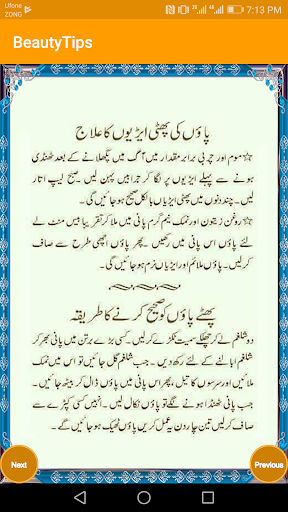 Ufone
ZONG
7:13 PM
BeautyTips
پاؤں کی پھٹی ایڑیوں کا علاج
☆موم اور چربی برابر مقدار میں آگ میں پگھلانے کے بعد ٹھنڈی
ہونے سے پہلے ایڑیوں پر لگا کر جرابیں پہن لیں۔ صبح لیپ اتار
لیں۔ چند دنوں میں پھٹی ایڑیاں بالکل صحیح ہو جائیں گی۔
☆روغن زیتون اور نمک نیم گرم پانی میں ملا کر تقریباً بیس منٹ کے
لئے پاؤں اس پانی میں رکھیں۔ پھر پاؤں اچھی طرح سے صاف
کر لیں۔ پاؤں ملائم اور ایڑیاں نرم ہو جائیں گی۔
پھٹے پاؤں کو صحیح کرنے کا طریقہ
دو شلغم لے کر چھلکے سمیت ٹکڑے کر لیں۔ کسی بڑے برتن میں پانی بھر کر
شلغم ابالنے کے لئے رکھ دیں۔ جب شلغم گل جائیں تو اس میں نمک
ملائیں اور سرسوں کا تیل، پھر اس پانی میں پاؤں ڈال کر بیٹھ جائیں۔
جب پانی ٹھنڈا ہونے لگے تو پاؤں نکال لیں۔ انہیں کسی کپڑے سے
صاف کر لیں تین چار دن یہ عمل کریں پاؤں ٹھیک ہو جائیں گے۔
Next
Previous